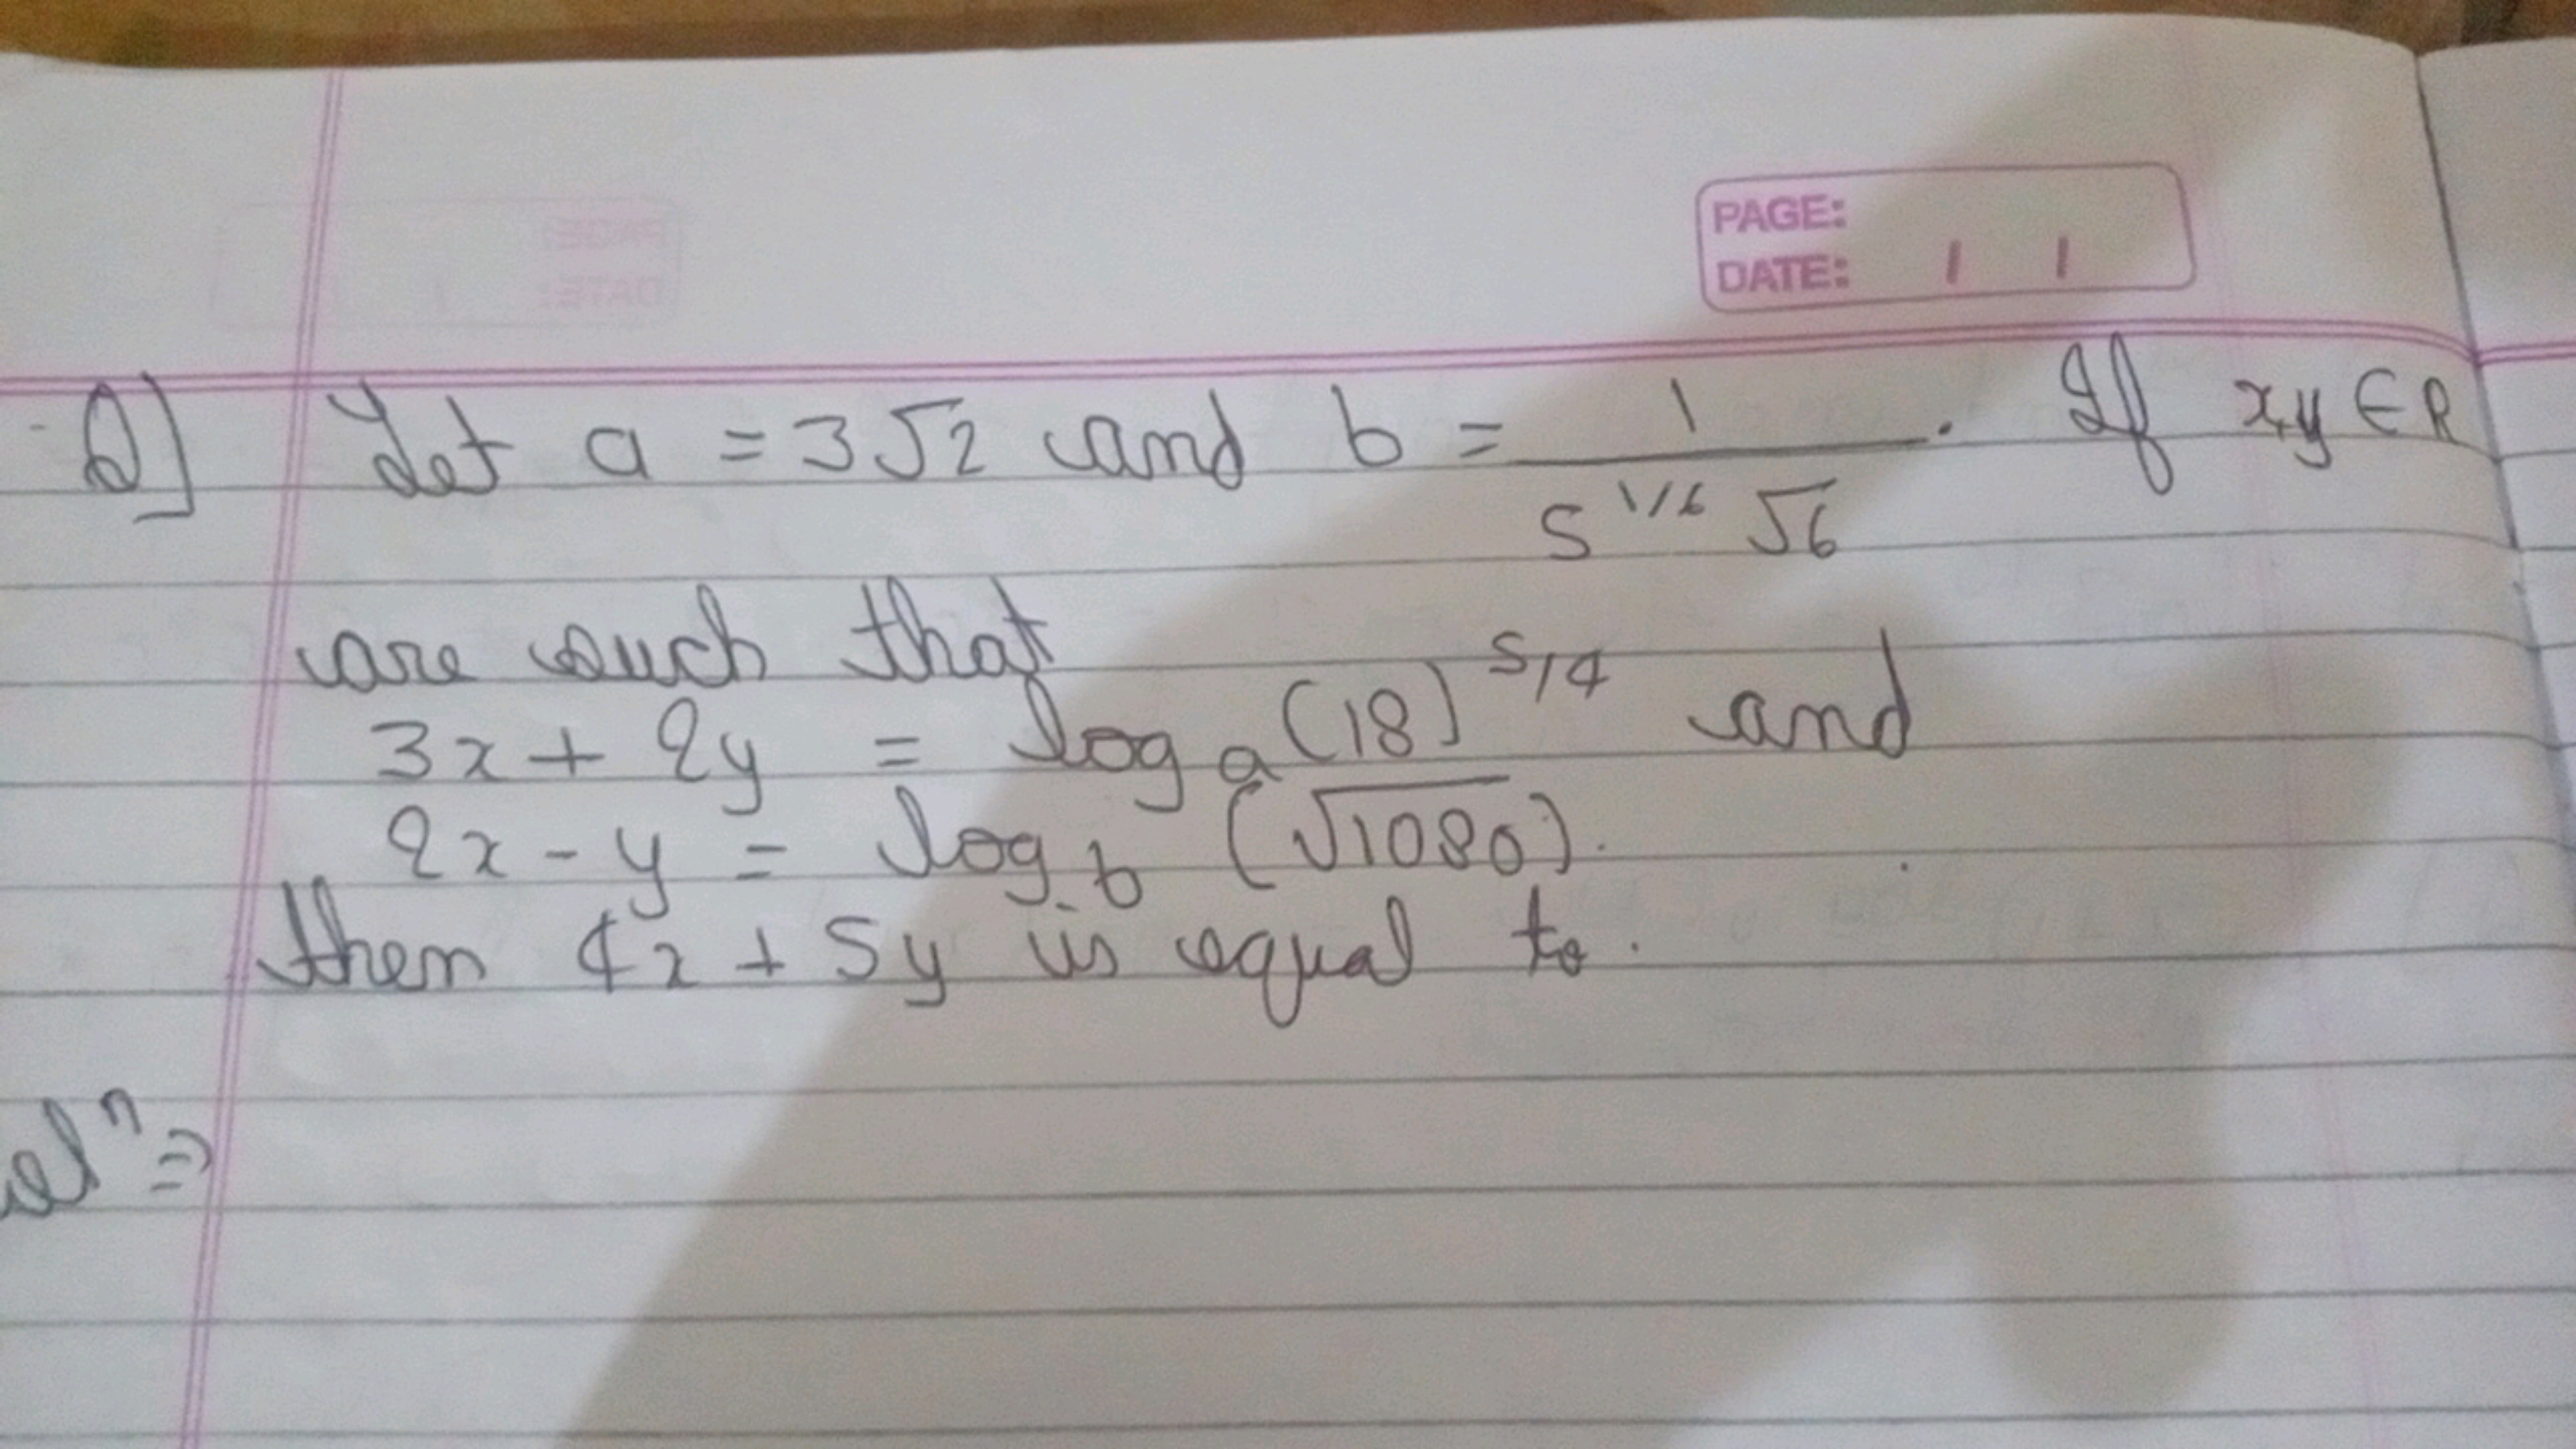 PAGE:
DATE: / /
Q] Let a = 3√2 and b = 1 / (5^1/6 √6). If x,y ∈ R
are such that
3x + 2y = log_a (18)^5/4 and
2x - y = log_b (√1080).
then 4x + 5y is equal to.
sol^n ⇒